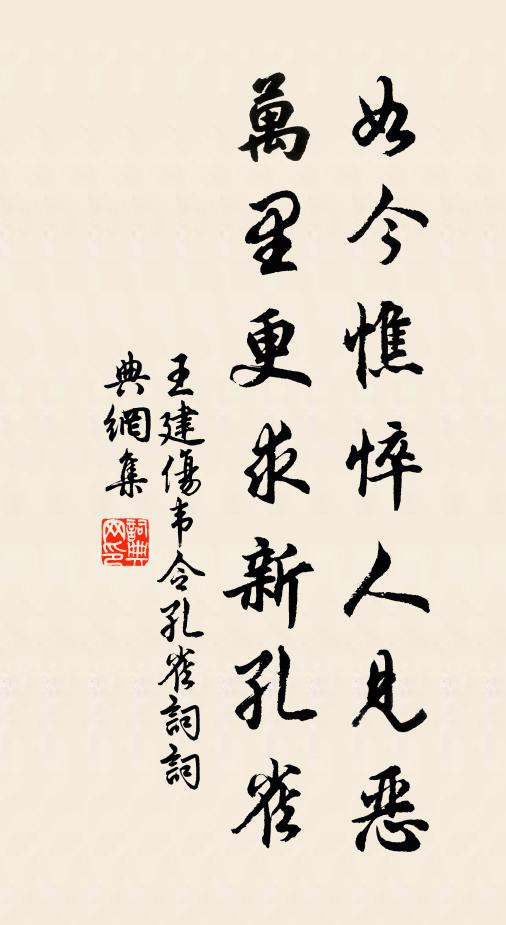 如今憔悴人見惡
萬里更求新孔雀
王建傷韦令孔雀詞詞
典網集
詞典网印